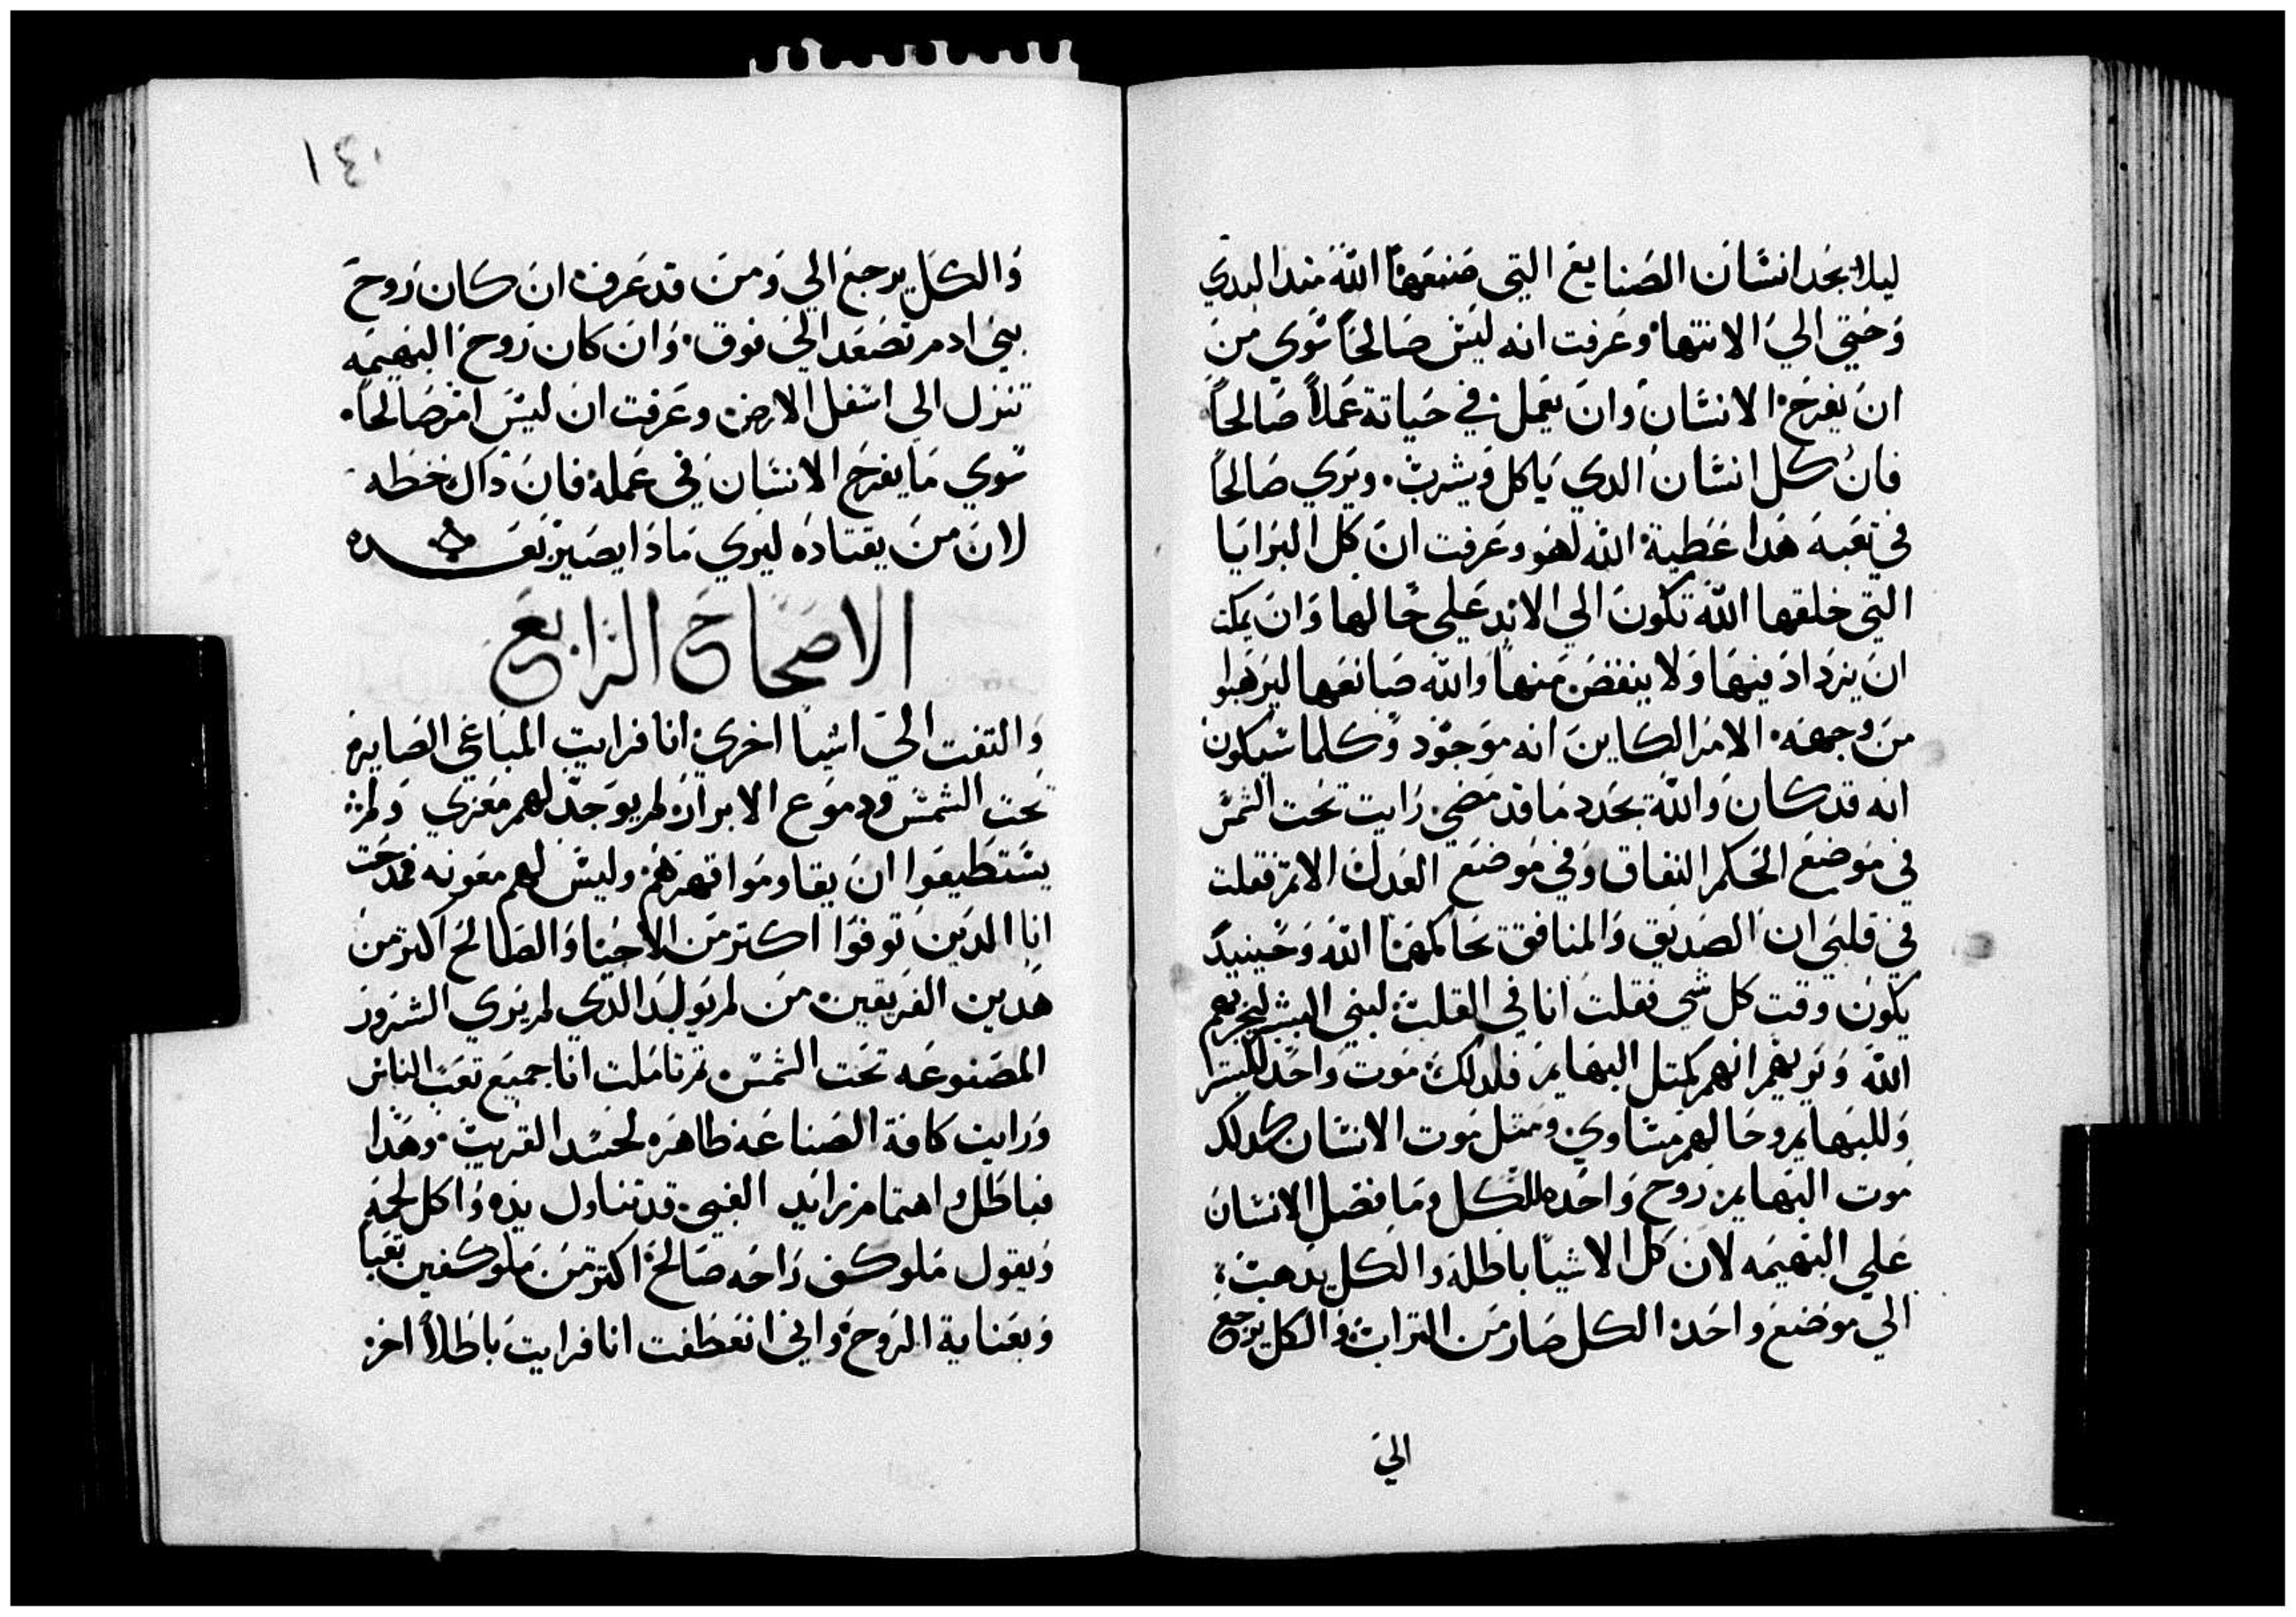 ليلا يجد انسان الصنايع التي صنعها الله منذ البدي
وحتي الي الانتها وعرفت انه ليس صالحاً سوي من
ان يفرح الانسان وان يعمل في حياتة عملاً صالحاً
فان كل انسان الدي ياكل ويشرب. ويري صالحاً
في تعبه هدا عطية الله لهو وعرفت ان كل البرايا
التي خلقها الله تكون الي الابد علي حالها وان يمكنه
ان يزداد فيها ولا ينقص منها والله صانعها ليرهبوا
من وجهه. الامر الكاين انه موجود وكلما سيكون
انه قد كان والله يجدد ما قد مضي رايت تحت الشمس
في موضع الحكم النفاق وفي موضع العدل الاتم فقلت
في قلبي ان الصديق والمنافق يحاكمهما الله وحينيد
يكون وقت كل شي فقلت انا في القلب لبني البشر ليجربهم
الله ويريهم انهم كمتل البهايم فلدلك موت واحد للبشر
وللبهايم وحالهم متساوي ومتل موت الانسان كدلك
موت البهايم روح واحده للكل وما فضل الانسان
علي البهيمه لان كل الاشيا باطله والكل يدهب
الي موضع واحد الكل صار من التراب والكل يرجع
الي
١٤٠
والكل يرجع الي ومن قد عرف ان كان روح
بني ادم تصعد الي فوق. وان كان روح البهيمه
تنزل الي اسفل الارض وعرفت ان ليس امر صالحاً.
سوي ما يفرح الانسان في عمله فان داك خطه
لان من يقتاده ليري مادا يصير بعده
الاصحاح الرابع
والتفت الي اشيا اخري انا فرايت المباغي الصايره
تحت الشمس ودموع الابرار لم يوجد لهم معزي ولم
يستطيعوا ان يقاوموا قهرهم وليس لهم معونه فمدحت
انا الدين توفوا اكتر من الاحيا والصالح اكتر من
هدين الفريقين من لم يولد الدي لم يري الشرور
المصنوعه تحت الشمس تم تاملت انا جميع تعب الناس
ورايت كافة الصناعه ظاهره لحسد القريب. وهدا
فباطل واهتمام زايد الغبي قد تناول يده واكل لحمه
ويقول ملو كف راحه صالح اكتر من ملو كفين تعباً
وبعناية الروح واني انعطفت انا فرايت باطلاً اخر